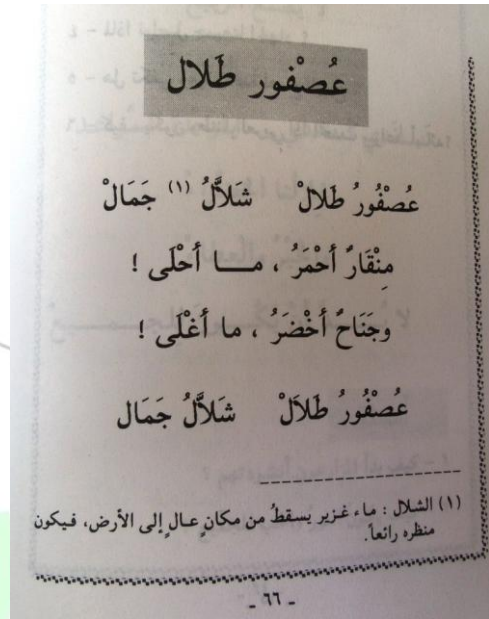 عُصْفور طَلال
عُصْفُورُ طَلالْ شَلاَّلُ (١) جَمَالْ
مِنْقَارٌ أَحْمَرُ ، مـــا أَحْلَى !
وجَنَاحٌ أَخْضَرُ ، ما أَغْلَى !
عُصْفُورُ طَلاَلْ شَلاَّلُ جَمَال
(١) الشلال : ماء غزير يسقطُ من مكانٍ عالٍ إلى الأرض، فيكون
منظره رائعاً.
- ٦٦ -